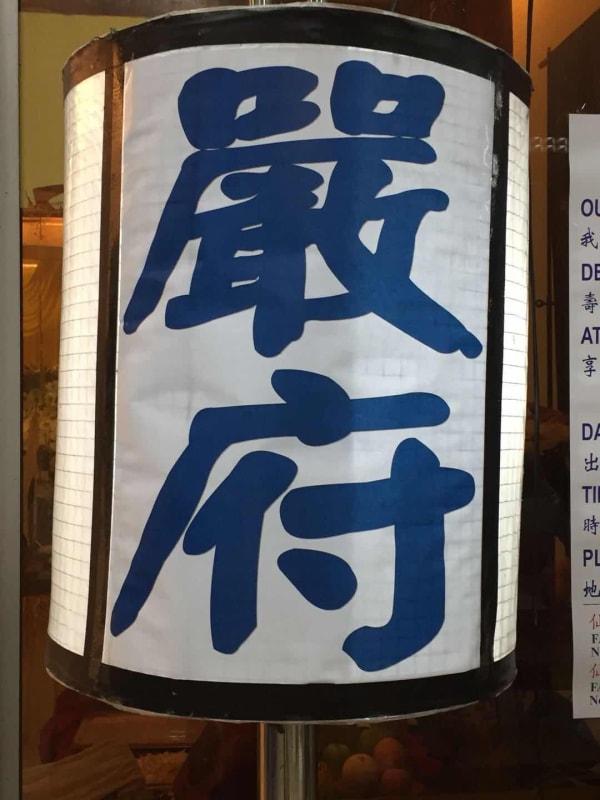 嚴
府
OU
我
DE
壽
AT
享
DA
出
TI
時
PL
地
仙
FA
仙
FA